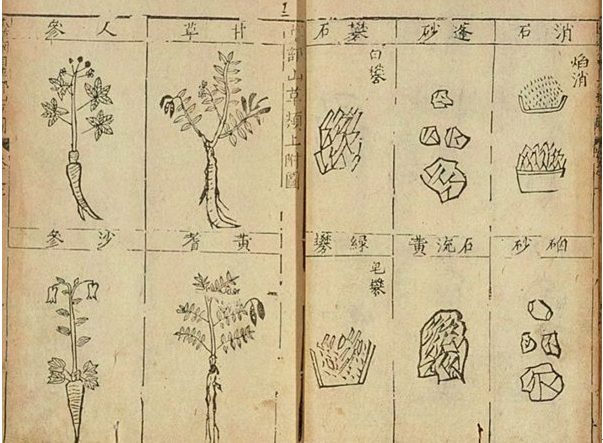 消石
焰消
蓬砂
礬石
白礬
硇砂
石流黄
綠礬
皂礬
部山草類上附圖
甘草
人參
黃耆
沙參